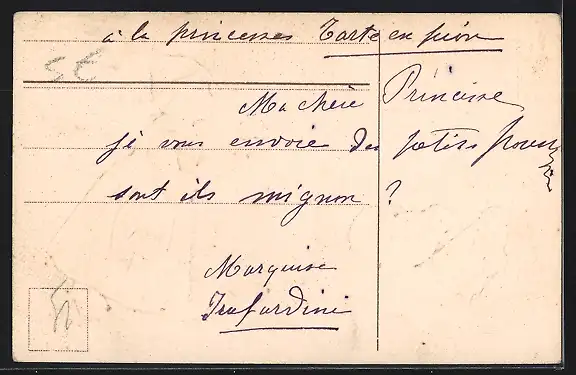 à la princesses Tarte en pion
Ma chère Princesse
je vous envoie des petits
sont ils mignon ?
Marquise
Trafardine